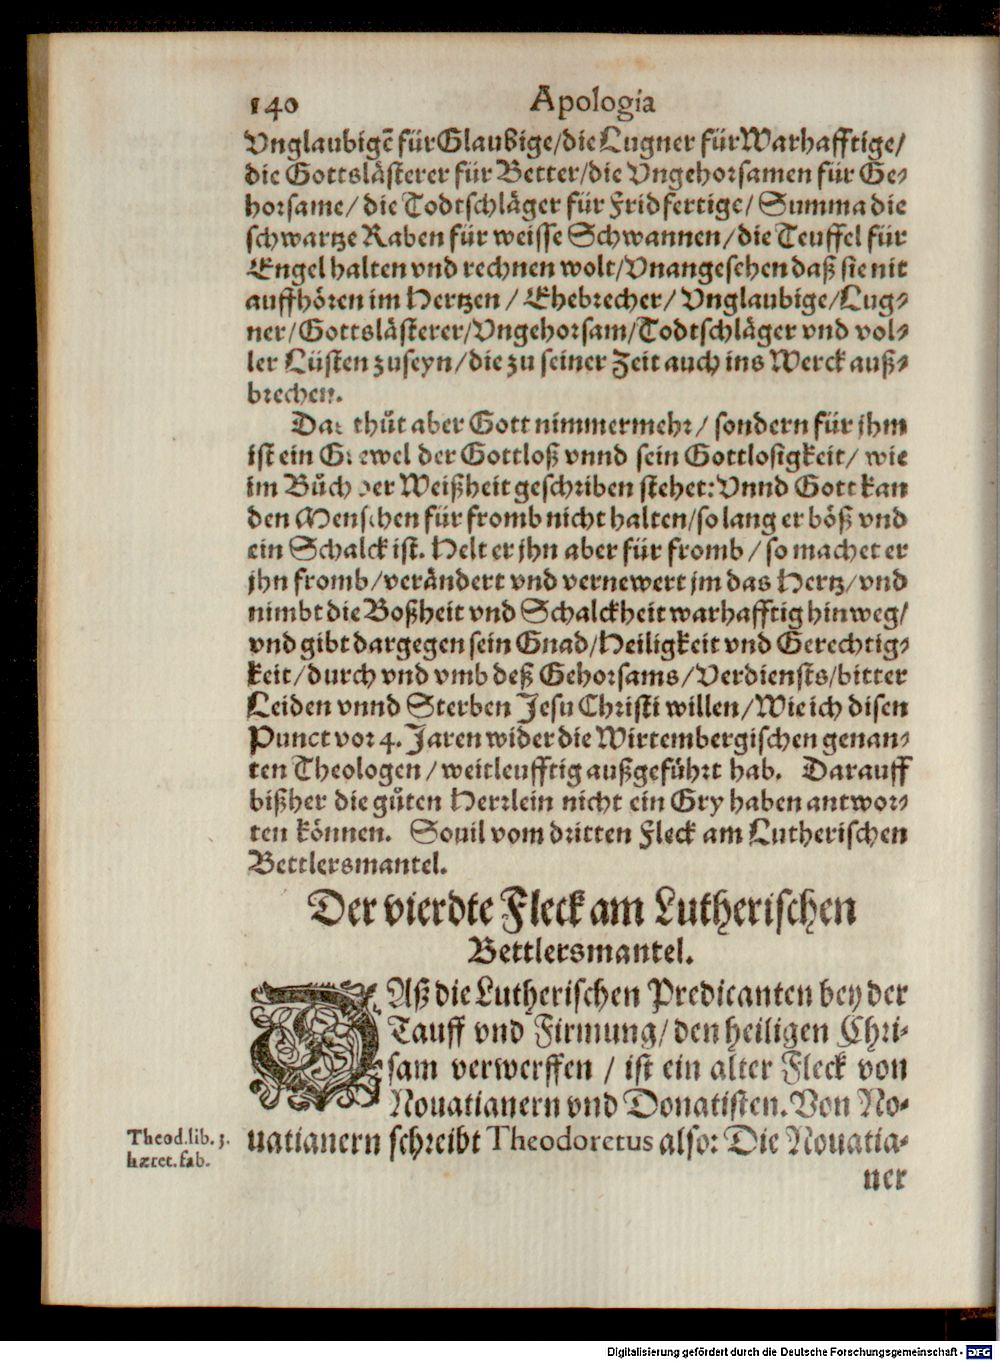 140 Apologia
Vnglaubigē für Glaubige/die Lugner für Warhafftige/
die Gottslästerer für Better/die Vngehorsamen für Ge-
horsame/ die Todtschläger für Fridfertige/ Summa die
schwartze Raben für weisse Schwannen/die Teuffel für
Engel halten vnd rechnen wolt/Vnangesehen daß sie nit
auffhören im Hertzen / Ehebrecher/ Vnglaubige/Lug-
ner/Gottslästerer/Vngehorsam/Todtschläger vnd vol-
ler Lüsten zuseyn/die zu seiner Zeit auch ins Werck auß-
brechen.
Das thůt aber Gott nimmermehr/ sondern für jhm
ist ein Grewel der Gottloß vnnd sein Gottlosigkeit/ wie
im Bůch der Weißheit geschriben stehet: Vnnd Gott kan
den Menschen für fromb nicht halten/so lang er böß vnd
ein Schalck ist. Helt er jhn aber für fromb/ so machet er
jhn fromb/verändert vnd vernewert jm das Hertz/vnd
nimbt die Boßheit vnd Schalckheit warhafftig hinweg/
vnd gibt dargegen sein Gnad/Heiligkeit vnd Gerechtig-
keit/durch vnd vmb deß Gehorsams/Verdiensts/bitter
Leiden vnnd Sterben Jesu Christi willen/Wie ich disen
Punct vor 4. Jaren wider die Wirtembergischen genan-
ten Theologen/weitleufftig außgeführt hab. Darauff
bißher die gůten Herrlein nicht ein Gry haben antwor-
ten können. Souil vom dritten Fleck am Lutherischen
Bettlersmantel.
Der vierdte Fleck am Lutherischen
Bettlersmantel.
DAß die Lutherischen Predicanten bey der
Tauff vnd Firmung/ den heiligen Chri-
sam verwerffen / ist ein alter Fleck von
Nouatianern vnd Donatisten. Von No-
Theod. lib. 3.
hæret. fab.
uatianern schreibt Theodoretus also: Die Nouatia-
ner
Digitalisierung gefördert durch die Deutsche Forschungsgemeinschaft - DFG